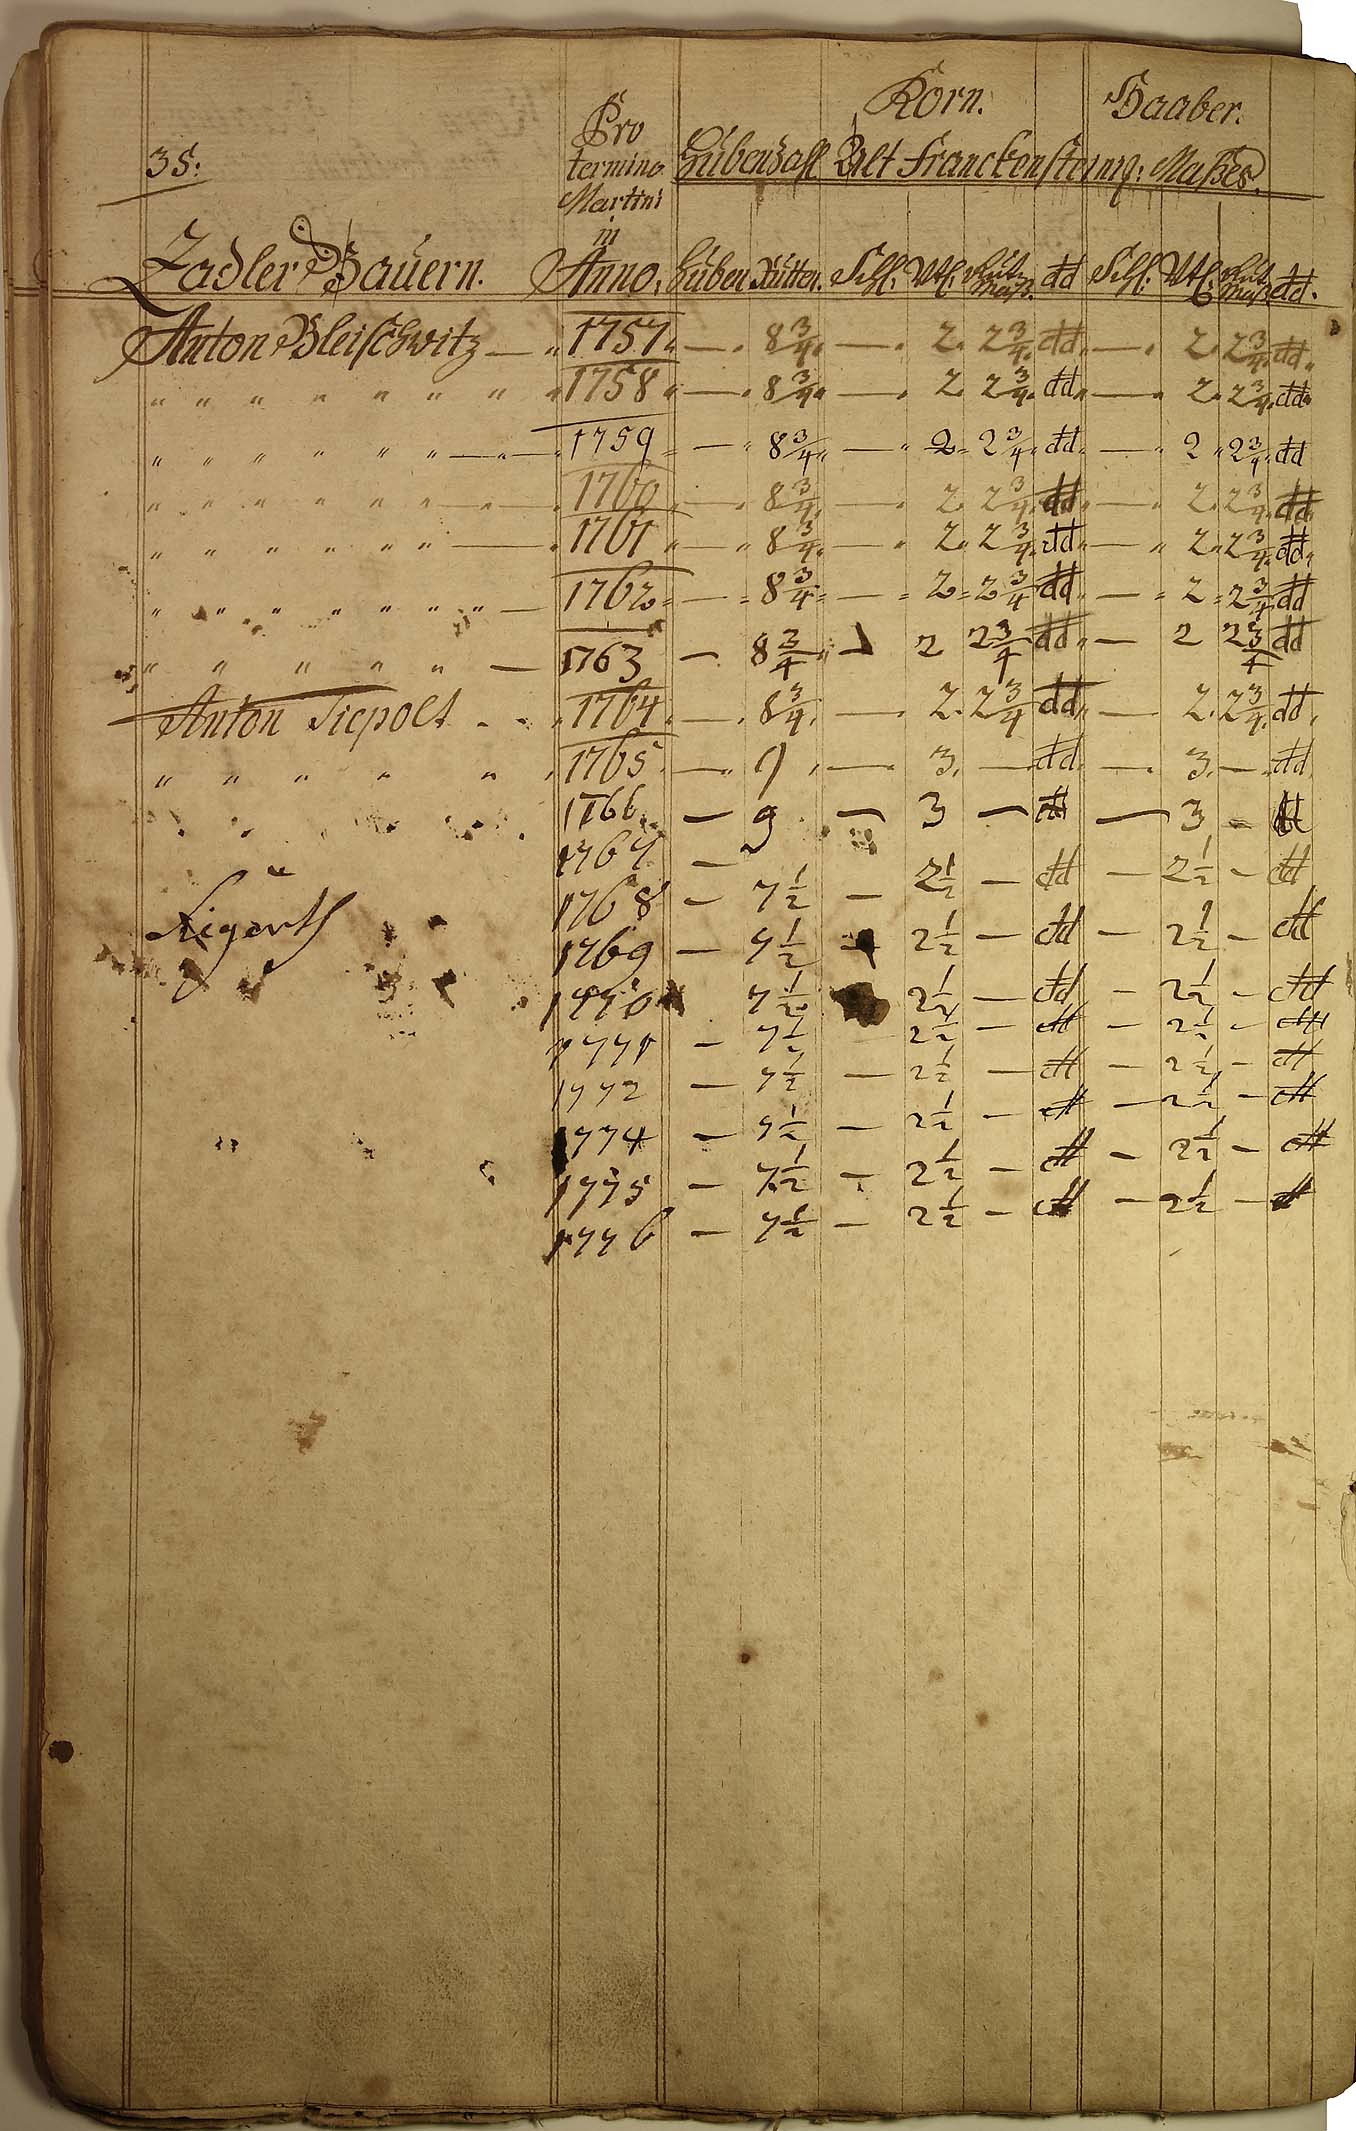 35:
Pro termino Martini in
Korn. Haaber.
Hubenzahl Alt Franckensteinig: Maßes.
Zadler Bauern. Anno. Huben Rutten. Schl. Vtl. dd Schl. Vtl. dd.
Anton Bleischwitz — " 1757 " — . 8 3/4 . — . 2. 2 3/4. dd " — . 2. 2 3/4. dd "
" " " " " " " " 1758 " — . 8 3/4 " — . 2. 2 3/4. dd " — . 2. 2 3/4. dd "
" " " " " " — " — 1759 " — " 8 3/4 " — " 2 " 2 3/4 " dd " — " 2 " 2 3/4 " dd
" " " " " " " — " — 1760 " — . 8 3/4. — . 2. 2 3/4. dd " — . 2. 2 3/4. dd
" " " " " " " — 1761 " — " 8 3/4. — " 2. 2 3/4. dd " — " 2. 2 3/4. dd "
" " " " " " " " — 1762 " — " 8 3/4 " — " 2 " 2 3/4 dd " — " 2 " 2 3/4 dd
" " " " " — 1763 — 8 3/4 " — 2 2 3/4 dd " — 2 2 3/4 dd
Anton Tiepolt - - . 1764. — . 8 3/4. — 2. 2 3/4 dd " — 2. 2 3/4. dd.
" " " " " . 1765. — . 9 . — . 3. — dd. — . 3. — . dd.
1766 — 9 — 3 — dd — 3 — dd
1767 —
1768 — 7 1/2 — 2 1/2 — dd — 2 1/2 — dd
1769 — 7 1/2 — 2 1/2 — dd — 2 1/2 — dd
1770 7 1/2 2 1/2 — dd — 2 1/2 — dd
1771 — 7 1/2 — 2 1/2 — dd — 2 1/2 — dd
1772 — 7 1/2 — 2 1/2 — dd — 2 1/2 — dd
1774 — 7 1/2 — 2 1/2 — dd — 2 1/2 — dd
1775 — 7 1/2 — 2 1/2 — dd — 2 1/2 — dd
1776 — 7 1/2 — 2 1/2 — dd — 2 1/2 — dd